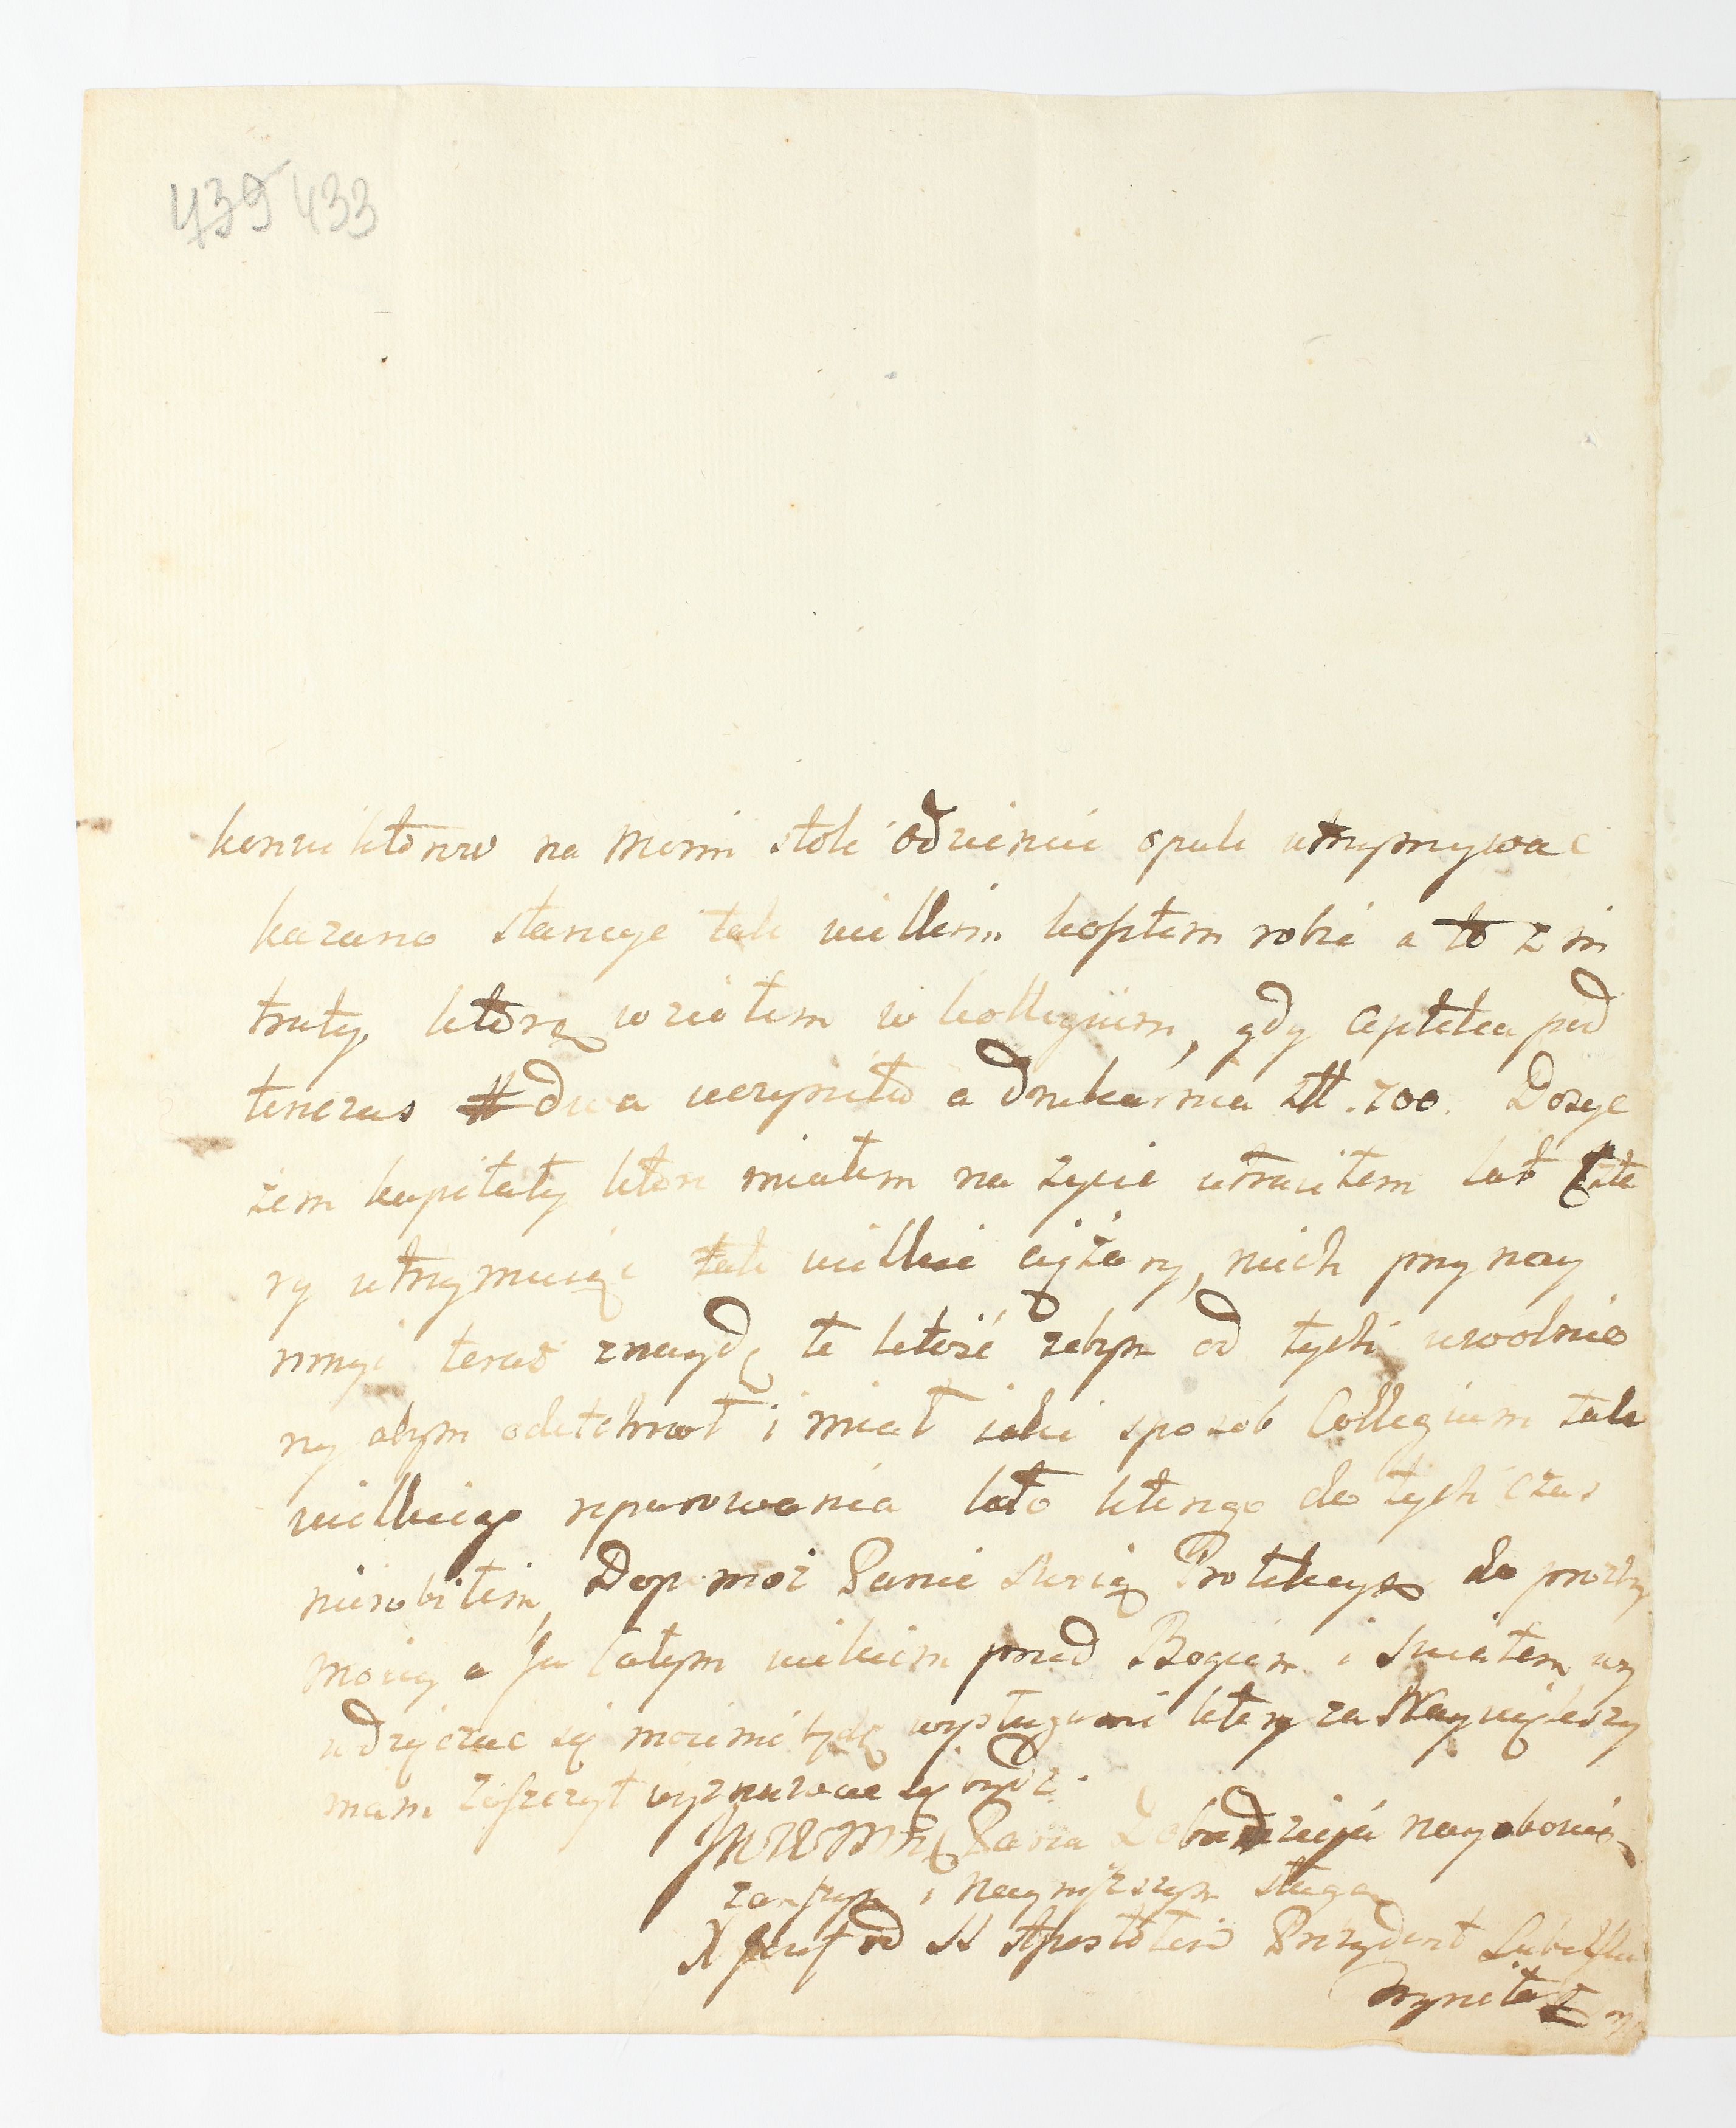 439 433
konwiktorow na moim stole odzienie opale utrzymywac
kazano stancye tak wielkim kosztem robić a to z in
traty, którą wziołem w kollegium, gdy apteka pod
tenczas # dwa uczyniła a drukarnia złł. 700. Dosyc
żem kapitały ktore miałem na zycie utracitem lat czte
ry utrzymuiąc tak wielkie ciężary, niech przynay
mniey teraz znaydę te litość żebym od tych uwolnio
ny abym odetchnoł i miał jaki sposob Collegium tak
wielkiego reparowania lato ktorego do tych czas
nierobiłem, Dopomoż Panie Swoią Protekcyą do prozby
moiey a Ja całym wiekiem przed Bogiem i Swiatem wy
wdzięczac się moiemi będę wysługami ktory za Naywiększy
mam zaszczyt wyznawac się bydz.
JWWMPana Dobrodzieja nayobowią
zanszym i Nayniższym sługą
X Jozef od SS Apostołow Prezydent Lubelski